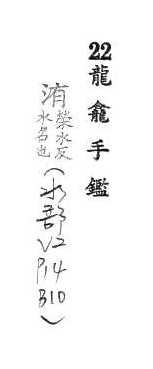 22龍龕手鑑
洧榮水反
水名也(水部V2P14B10)